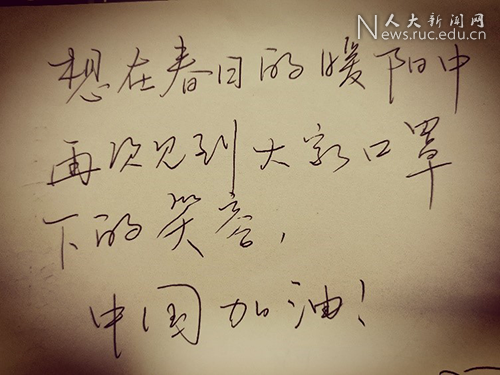 人大新闻网
News.ruc.edu.cn
想在春日的暖阳中
再次见到大家口罩
下的笑容，
中国加油！